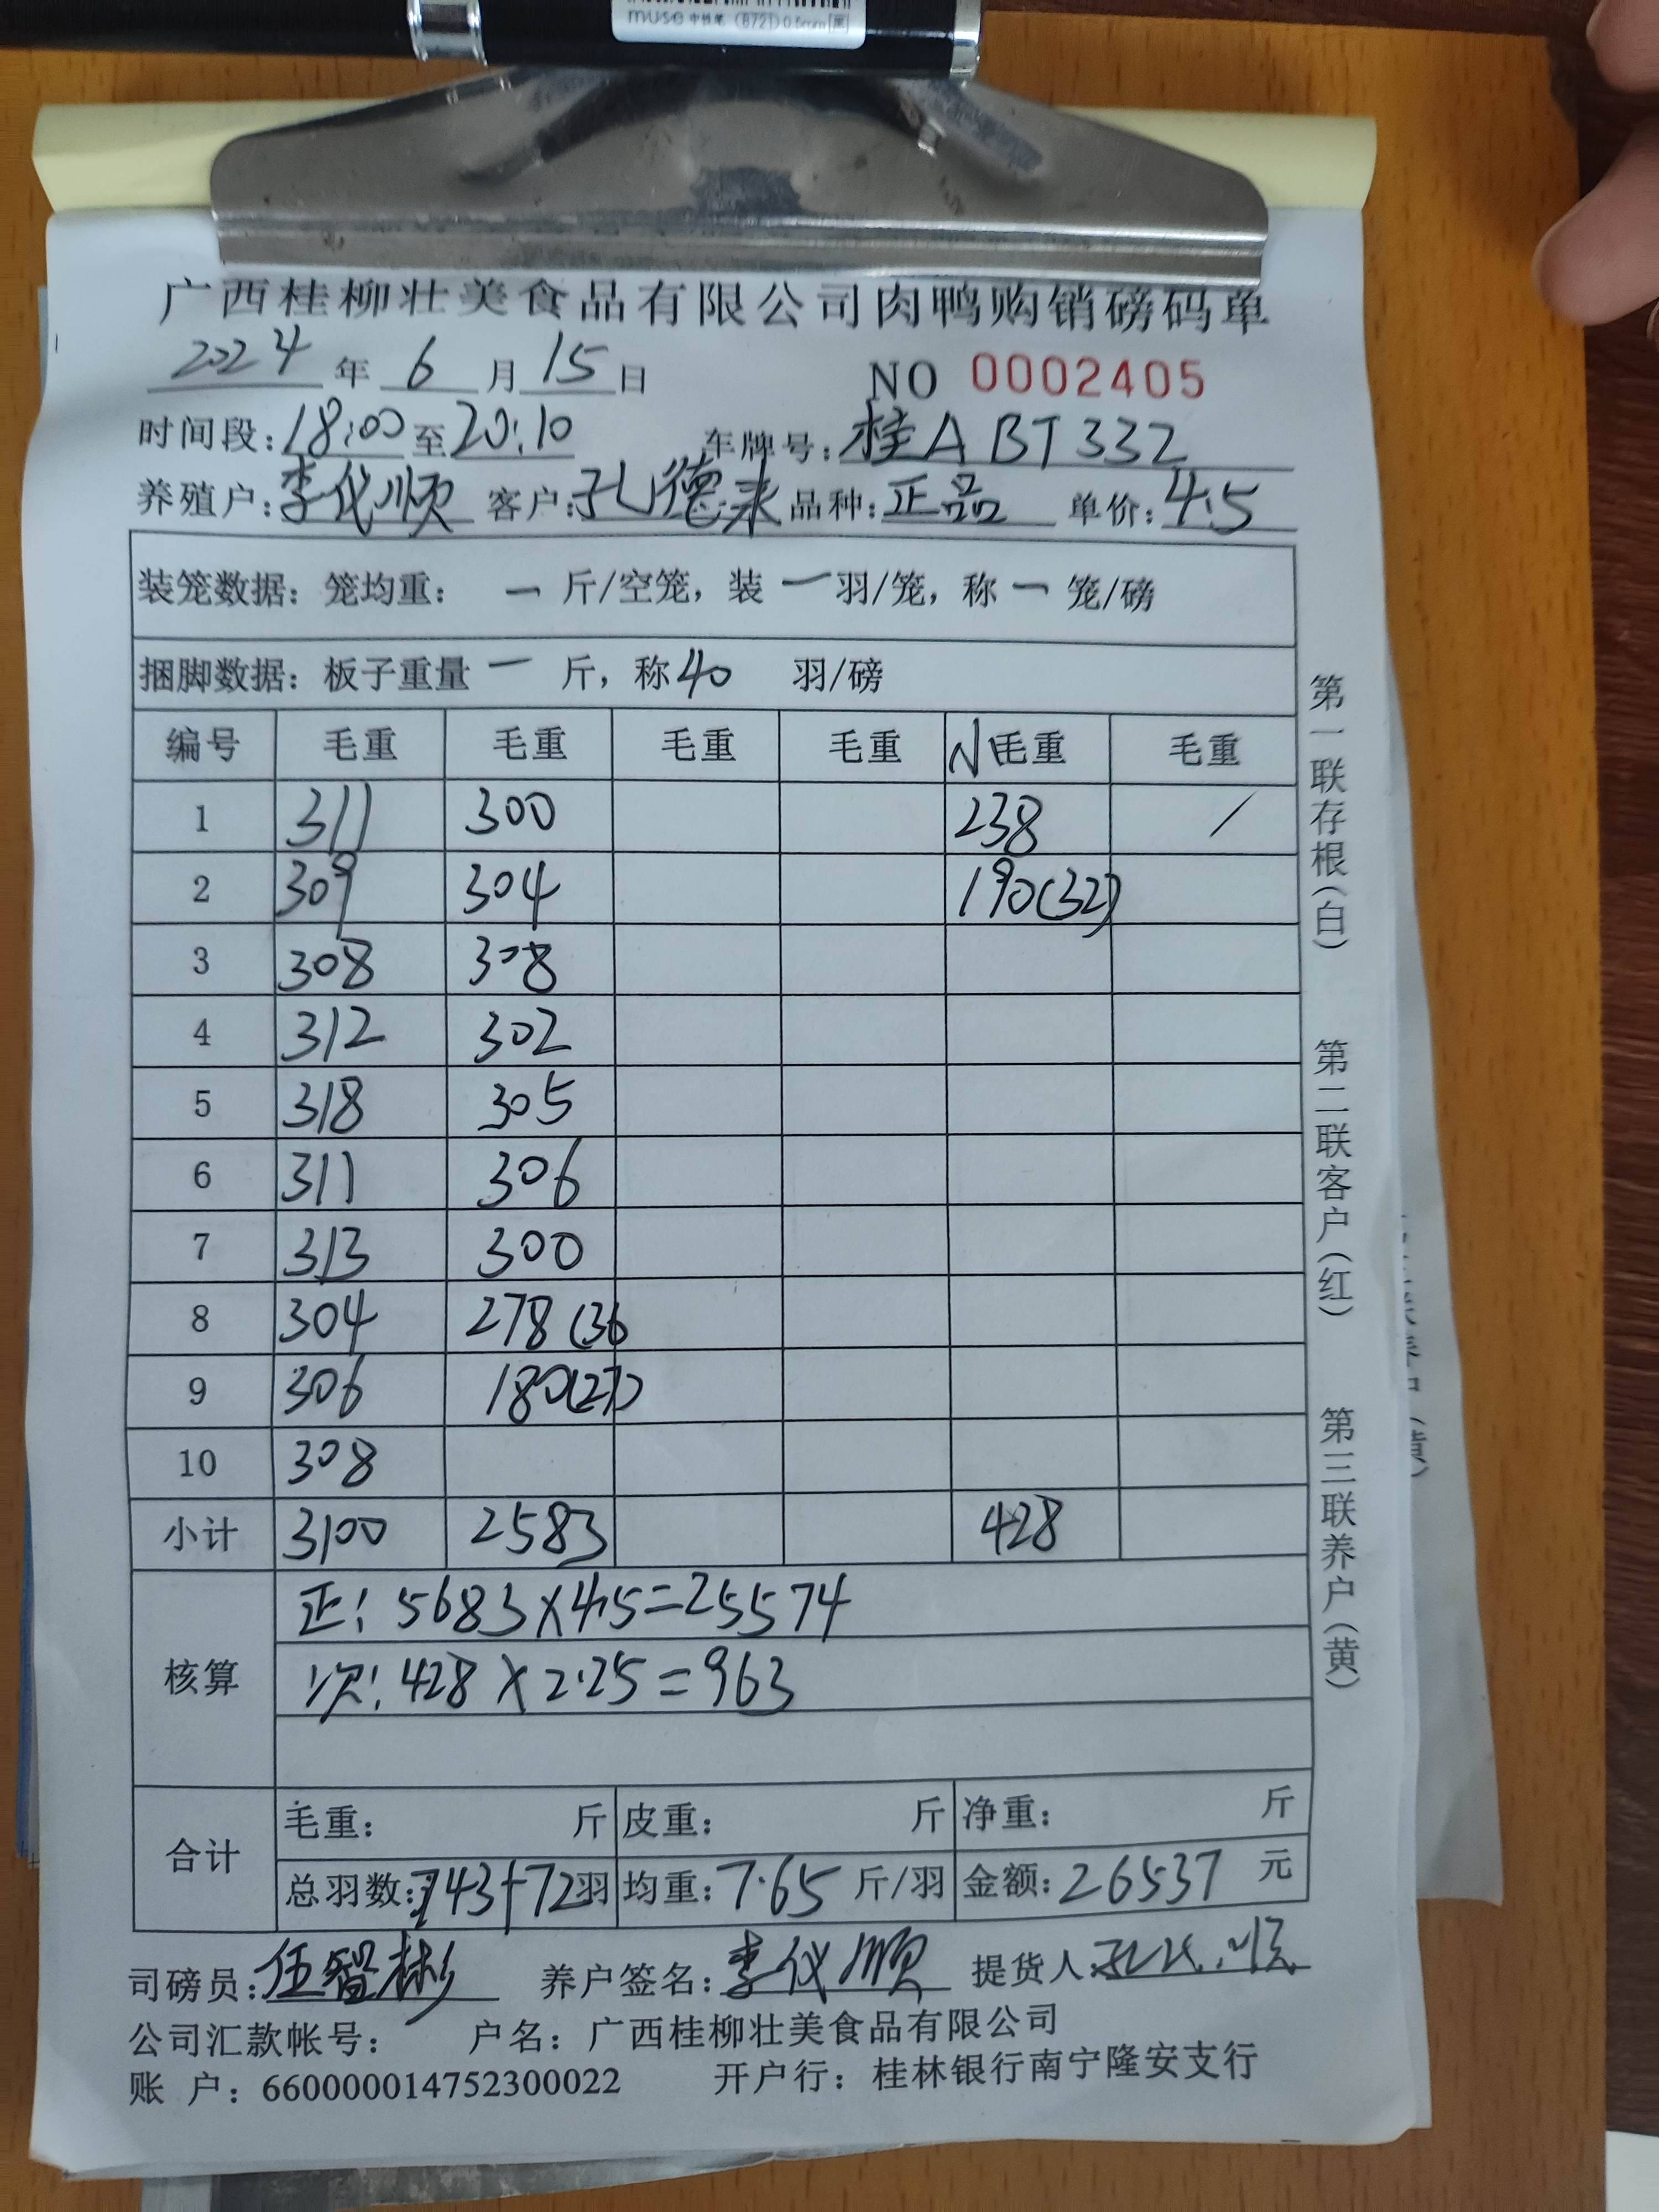 muse 中性笔 (872) 0.5mm [黑]
广西桂柳壮美食品有限公司肉鸭购销磅码单
2024 年 6 月 15 日 NO 0002405
时间段: 18:00 至 20:10 车牌号: 桂A BT332
养殖户: 李仪顺 客户: 孔德来 品种: 正品 单价: 4.5
装笼数据: 笼均重: 一 斤/空笼, 装 一 羽/笼, 称 一 笼/磅
捆脚数据: 板子重量 一 斤, 称 40 羽/磅
编号 毛重 毛重 毛重 毛重 毛重 毛重
1 311 300 238 /
2 309 304 190(32)
3 308 308
4 312 302
5 318 305
6 311 306
7 313 300
8 304 278 (36
9 306 180(27)
10 308
小计 3100 2583 428
核算
正: 5683×4.5=25574
次: 428×2.25=963
合计
毛重: 斤 皮重: 斤 净重: 斤
总羽数: 743+72羽 均重: 7.65 斤/羽 金额: 26537 元
司磅员: 伍智彬 养户签名: 李仪顺 提货人:
公司汇款帐号: 户名: 广西桂柳壮美食品有限公司
账 户: 660000014752300022 开户行: 桂林银行南宁隆安支行
第一联存根(白)
第二联客户(红)
第三联养户(黄)